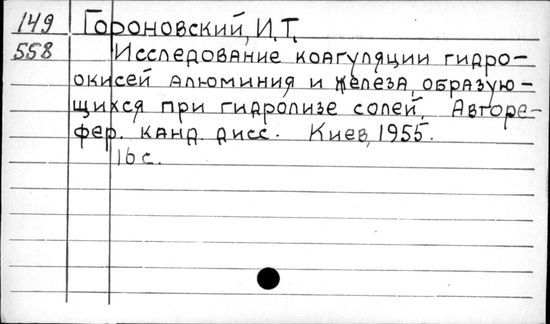 149 Гороновский, И.Т.
558 Исследование коагуляции гидро-
окисей алюминия и железа, образую-
щихся при гидролизе солей. Авторе-
фер. канд. дисс. Киев, 1955.
16 с.